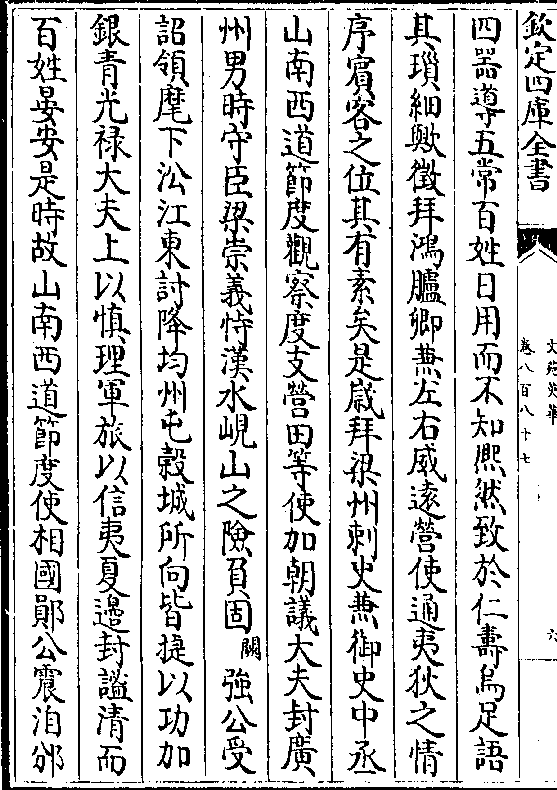 欽定四庫全書
文苑英華
卷八百八十七
六
四器導五常百姓日用而不知熈然致於仁夀烏足語
其瑣細歟徵拜鴻臚卿兼左右威遠營使通夷狄之情
序賓客之位其有素矣是嵗拜梁州刺史兼御史中丞
山南西道節度觀察度支營田等使加朝議大夫封廣
州男時守臣梁崇義恃漢水峴山之險負固闕強公受
詔領麾下㳂江東討降均州屯榖城所向皆捷以功加
銀青光禄大夫上以慎理軍旅以信夷夏邊封謐清而
百姓晏安是時故山南西道節度使相國鄖公震洎邠